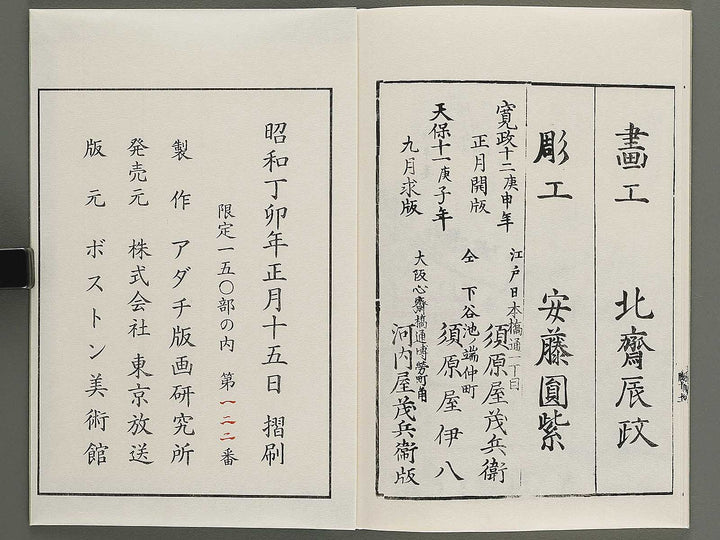 畫工 北齋辰政
彫工 安藤圓紫
寛政十二庚申年
正月開版
天保十一庚子年
九月求版
江戸日本橋通一丁目
須原屋茂兵衛
仝 下谷池ノ端仲町
須原屋伊八
大阪心齋橋通博勞町角
河内屋茂兵衞版
昭和丁卯年正月十五日 摺刷
限定一五〇部の内 第一二二番
製作 アダチ版画研究所
発売元 株式会社 東京放送
版元 ボストン美術館